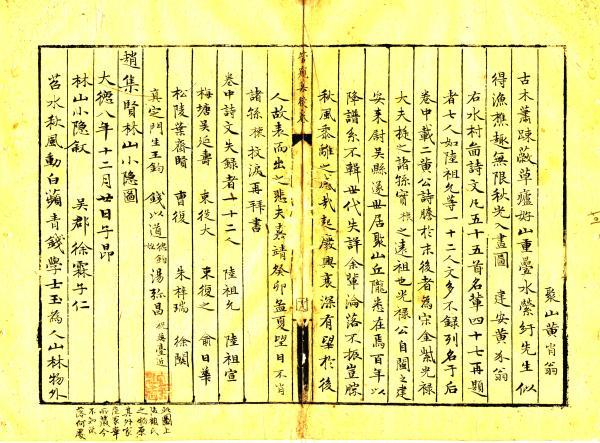 聚山黄肖翁
古木蕭踈蔽草廬好山重疊水縈紆先生似
得漁樵趣無限秋光入畫圖 建安黄
右水村啚詩文凡五十五首名軰四十七再題
者七人如陸祖允等一十二人文多不録列名于后
卷中載二黄公詩牓於末後者為宋金紫光禄
大夫 之諸孫實 之遠祖也光禄公自閩之建
安来尉吳縣遂世居聚山丘隴悉在焉百年以
降譜系不輯世代失詳余軰淪落不振豈勝
秋風黍離之感哉起廢興衰深有望於後
人故表而出之悲夫嘉靖癸卯孟夏望日不肖
諸孫 抆淚再拜書
卷中詩文失録者一十二人 陸祖允 陸祖宣
梅塘吳延壽 束從大 束復之 俞日華
松陵葉齋賢 曹復 朱梓瑞 徐關
真定門生王鈞 錢以道 湯弥昌
趙集賢林山小隱圖
大德八年十二月廿日子昂
林山小隱叙 吳郡徐霖子仁
苕水秋風動白蘋青錢學士玉為人山林物外